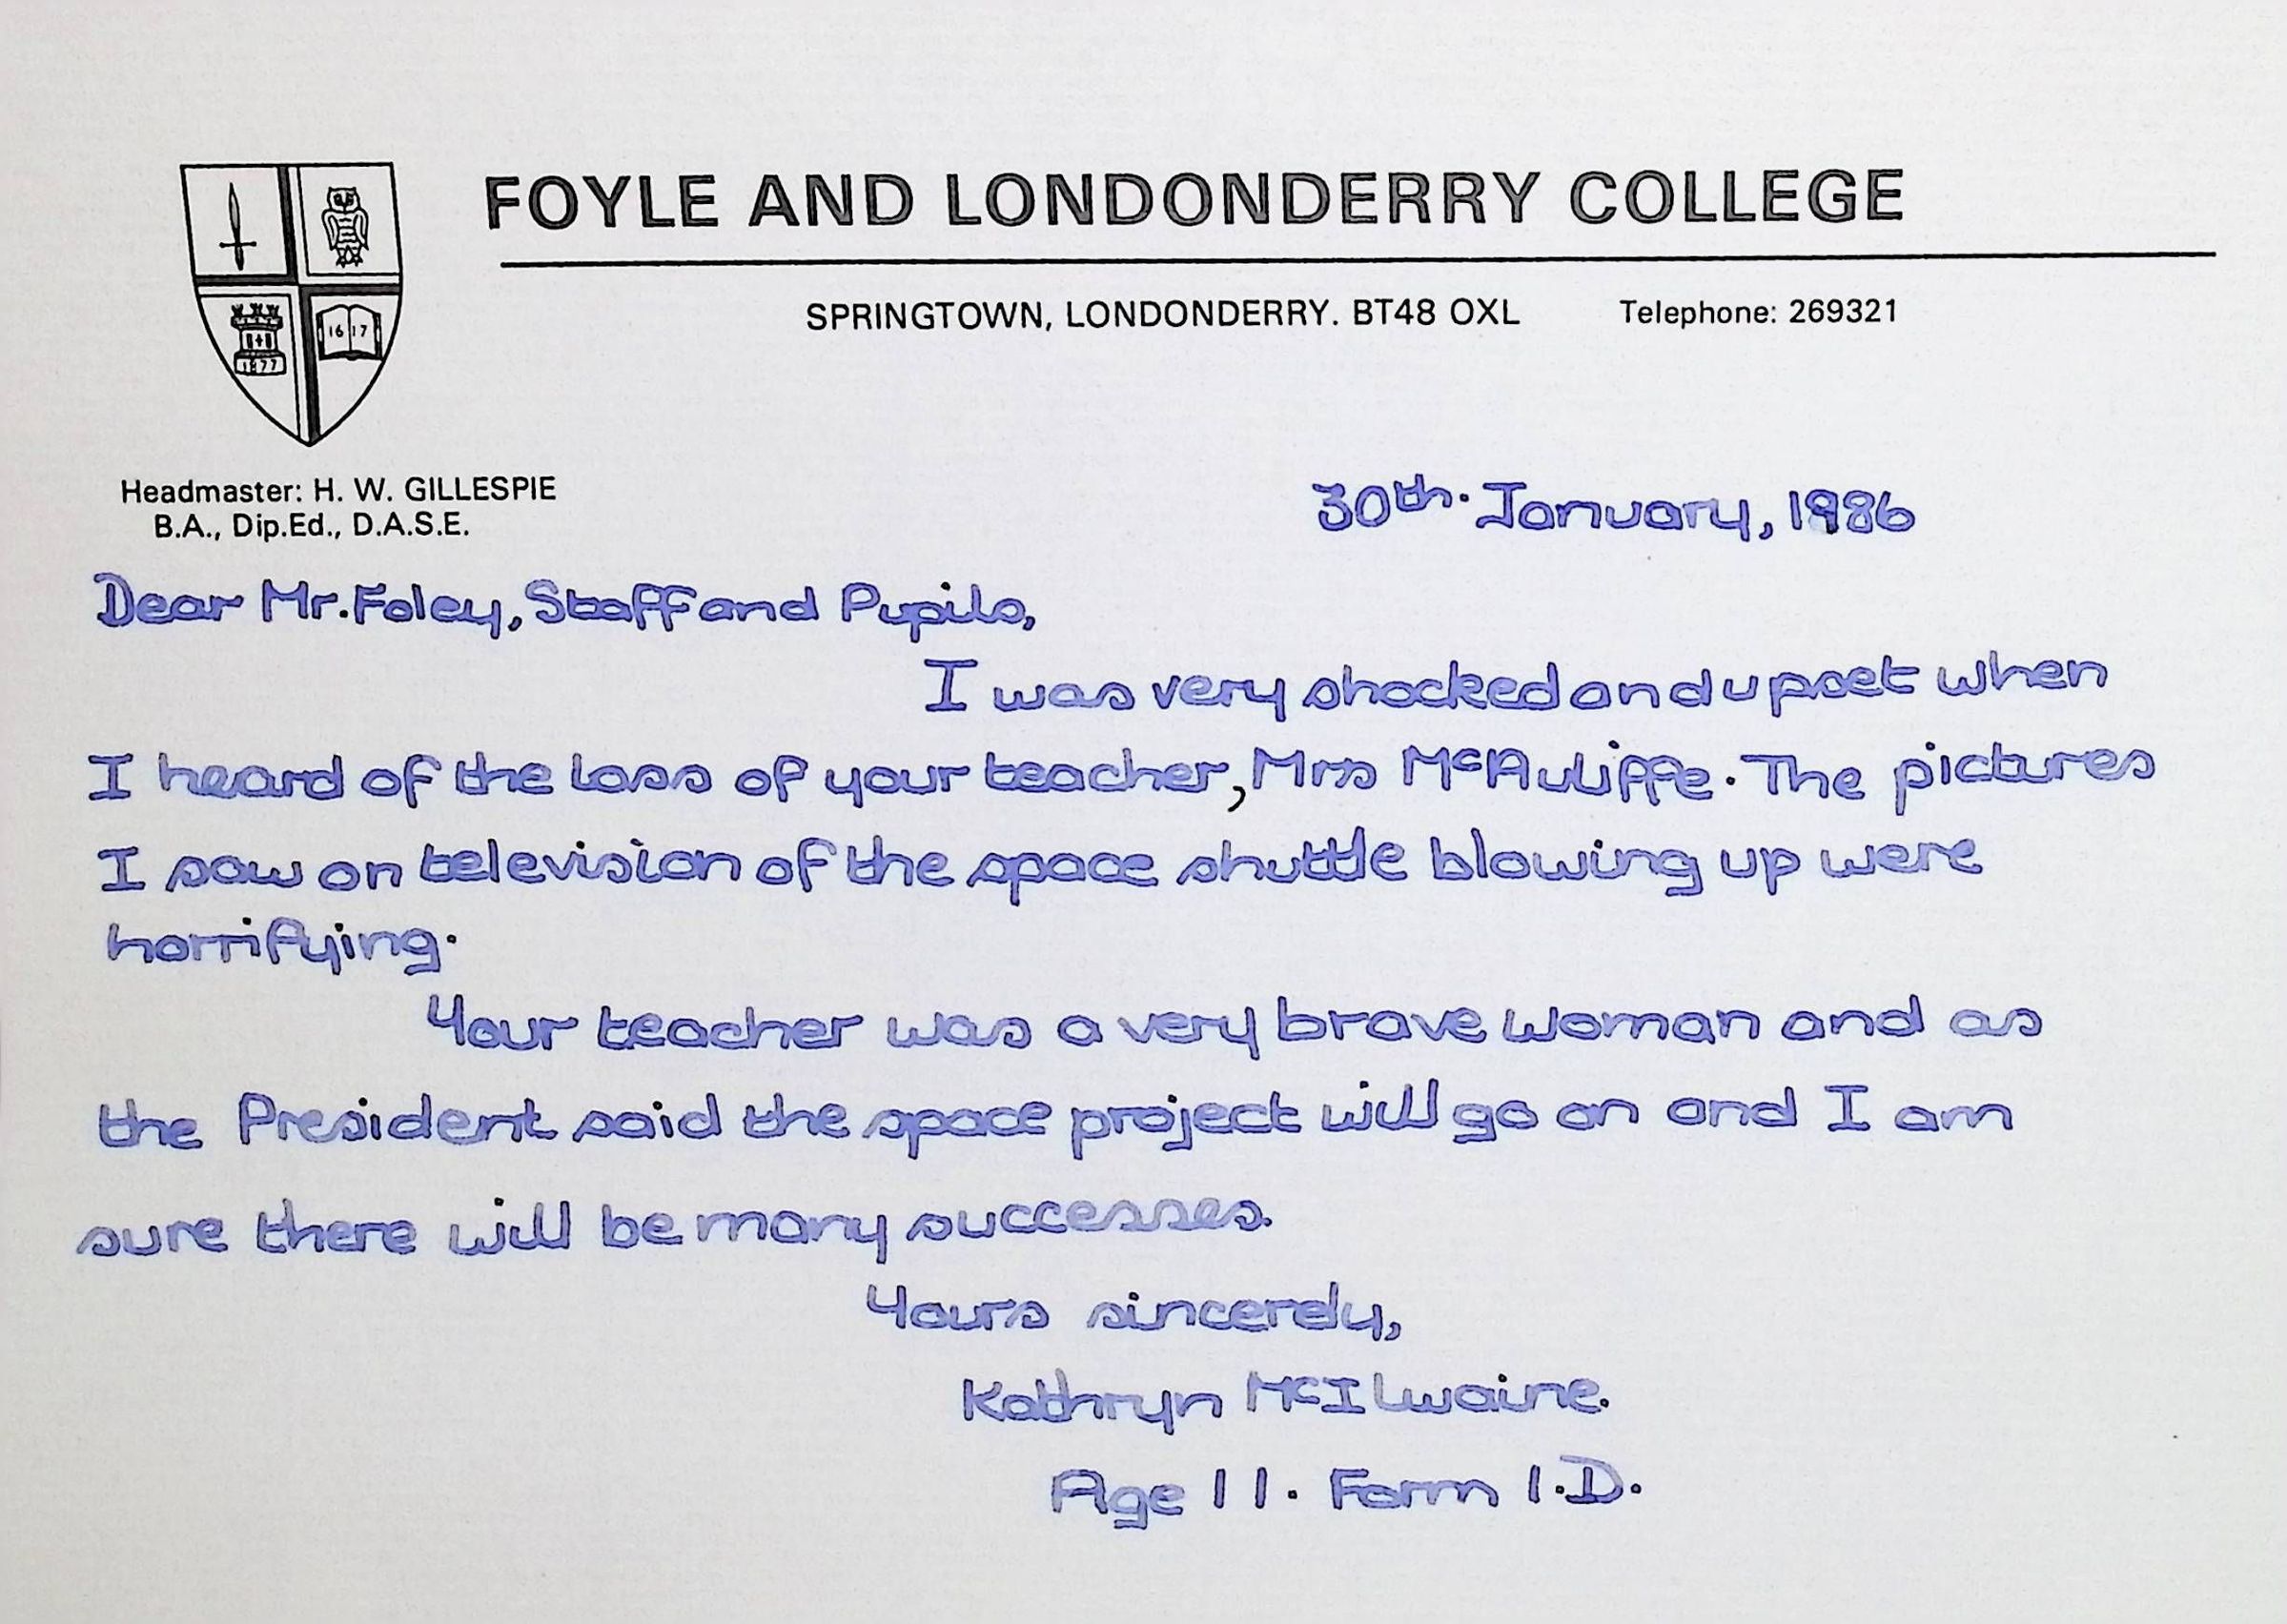 FOYLE AND LONDONDERRY COLLEGE
SPRINGTOWN, LONDONDERRY. BT48 OXL Telephone: 269321
16 17
1877
Headmaster: H. W. GILLESPIE
B.A., Dip.Ed., D.A.S.E.
30th. January, 1986
Dear Mr. Foley, Staff and Pupils,
I was very shocked and upset when
I heard of the loss of your teacher, Mrs McAuliffe. The pictures
I saw on television of the space shuttle blowing up were
horrifying.
Your teacher was a very brave woman and as
the President said the space project will go on and I am
sure there will be many successes.
Yours sincerely,
Kathryn McIlwaine.
Age 11. Form 1.D.